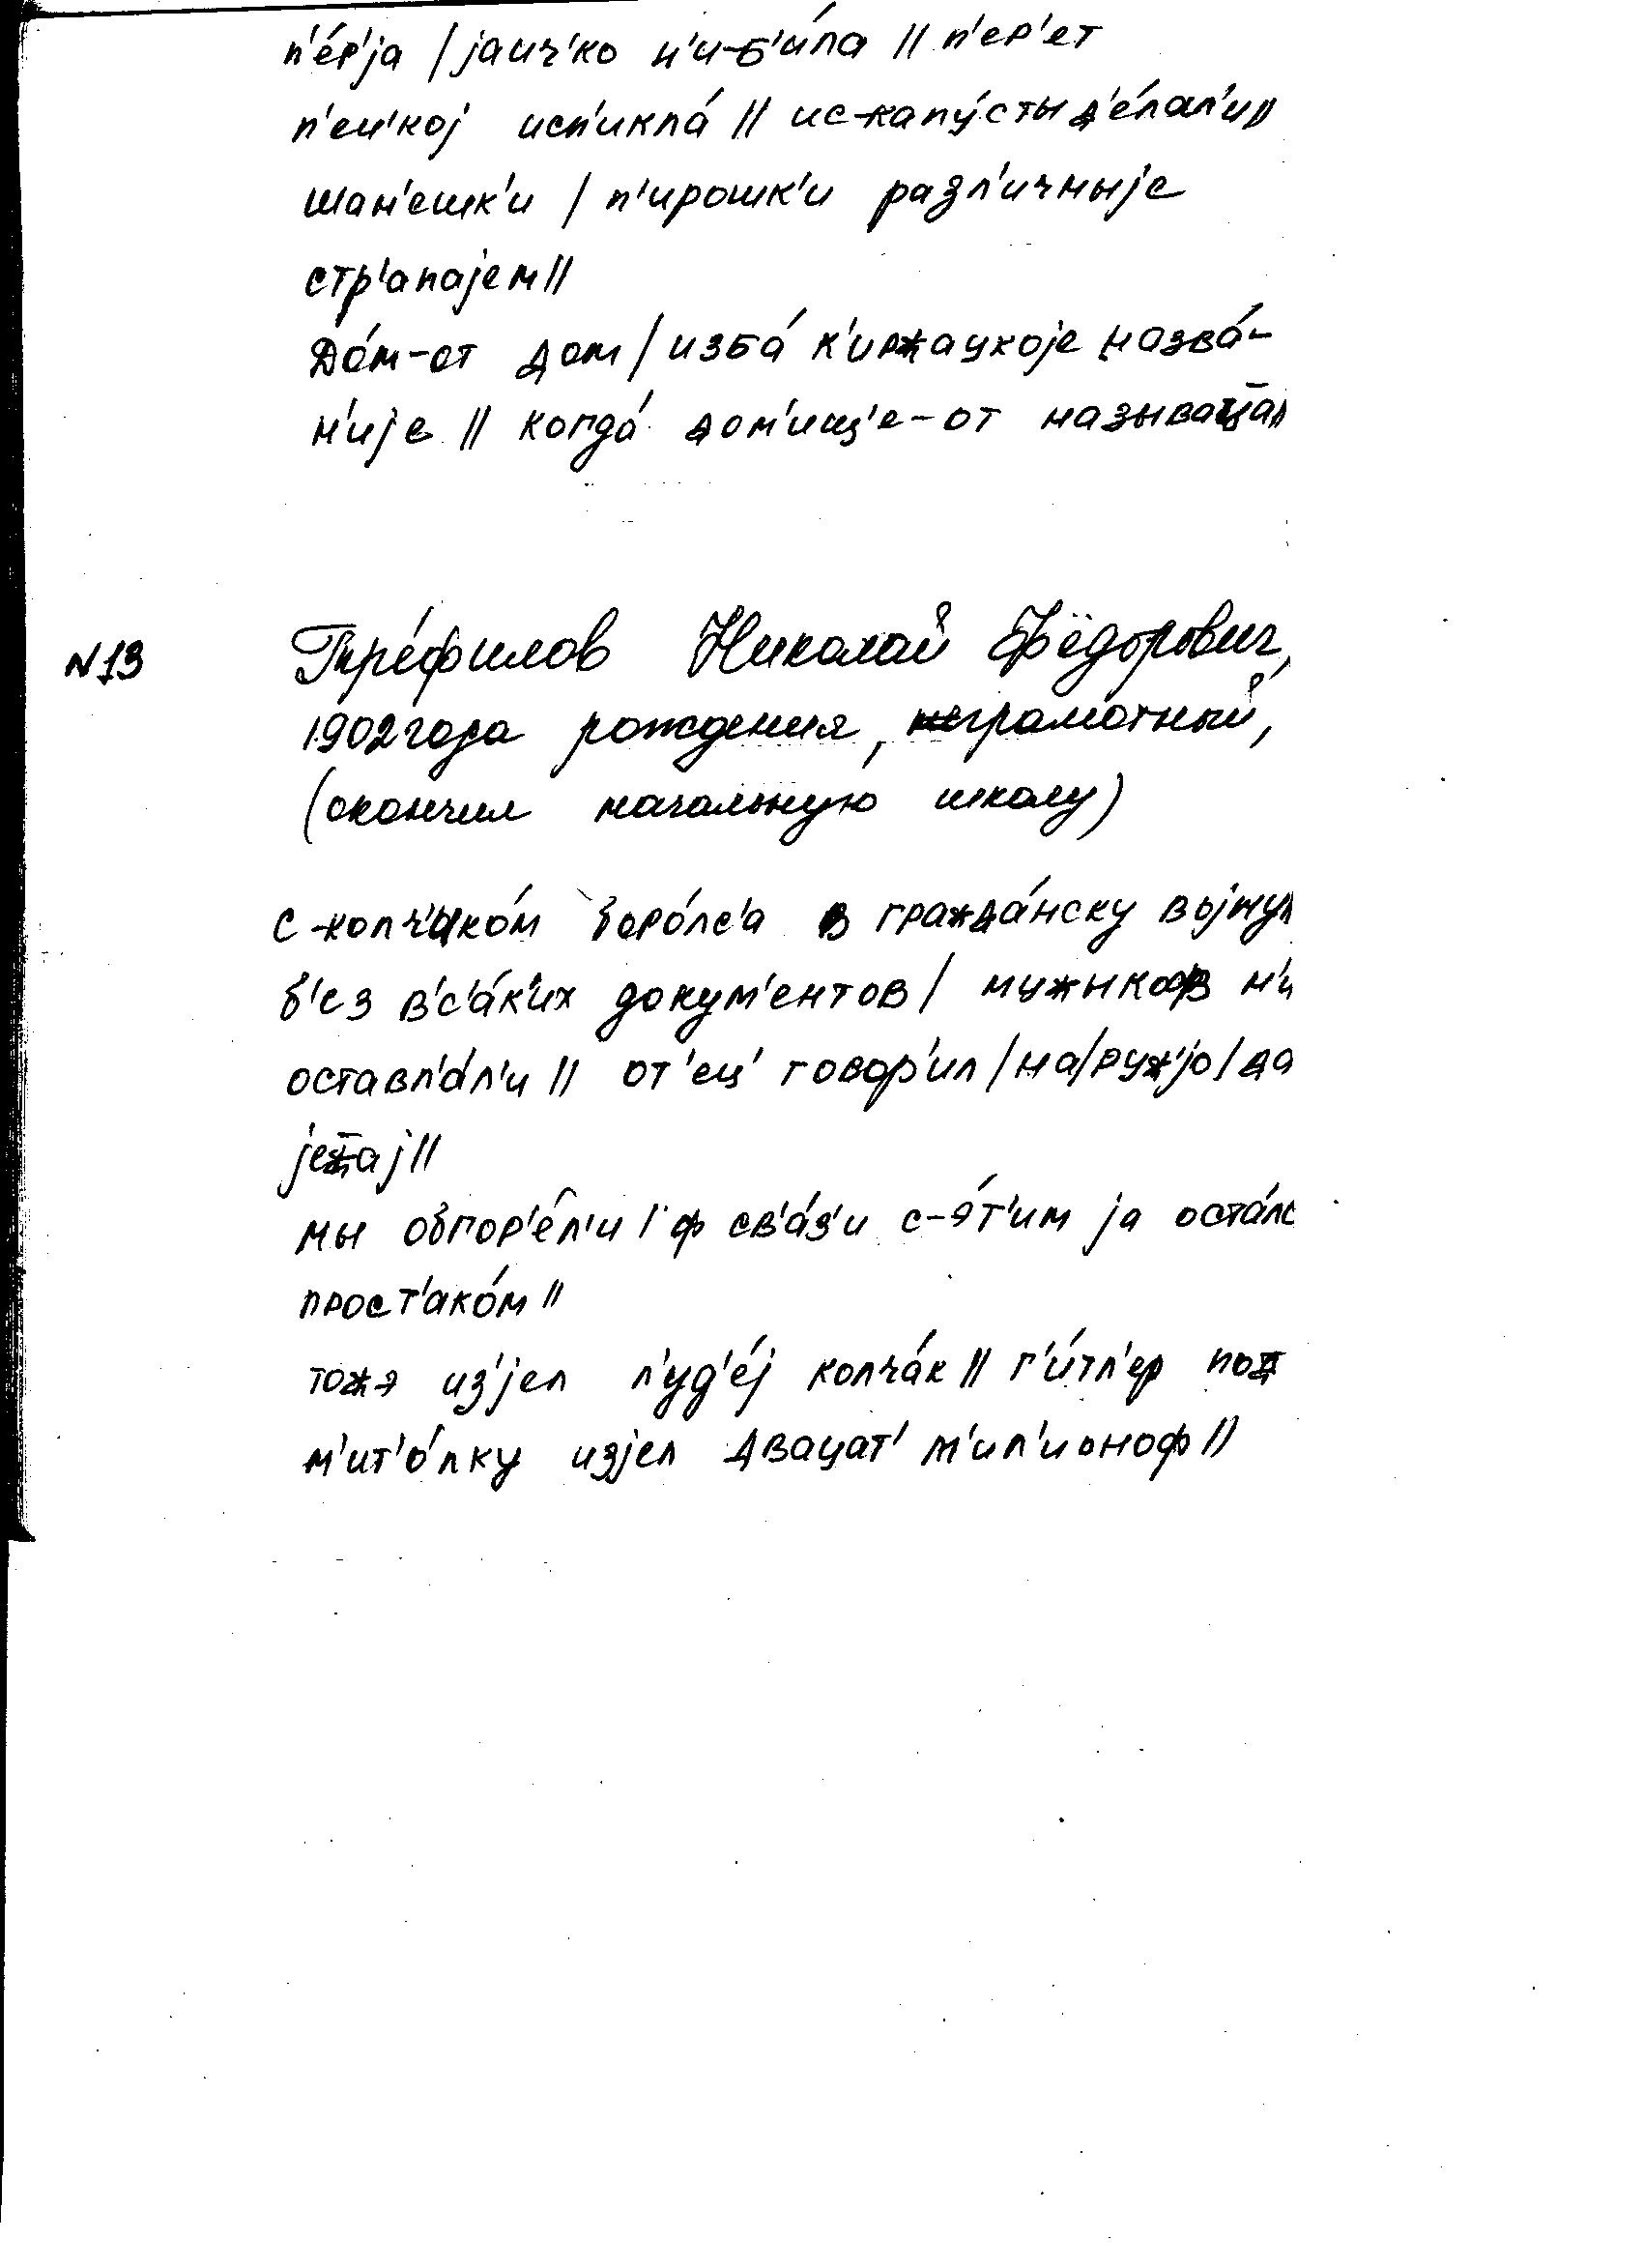 п'е́р'jа / jаич'ко н'и-б'и́ла // п'ер'ет
п'еч'коj исп'икла́ // ис-капу́сты д'е́лал'и //
шан'ешк'и / п'ирошк'и разл'ичныjе
стр'апаjем //
До́м-от дом / изба́ к'иржацкоjе назва́-
н'иjе // когда́ дом'ищ'е-от называц̅а //
N13 Тре́филов Николай Фёдорович,
1902 года рождения, неграмотный,
(окончил начальную школу)
с-колч'ако́м боро́лс'а в гражда́нску воjну //
б'ез в'с'а́к'их докум'ентов / мужыков н'и
оставл'а́л'и // от'ец' говор'ил / на / ружjо / да
jеж̅аj //
мы обгор'е́л'и / ф св'а́з'и с-э́т'им jа оста́лс
прост'ако́м //
тожэ из'jел л'уд'е́j колча́к // г'и́тл'ер под
м'ит'о́лку изjел двацат' м'ил'ионоф //